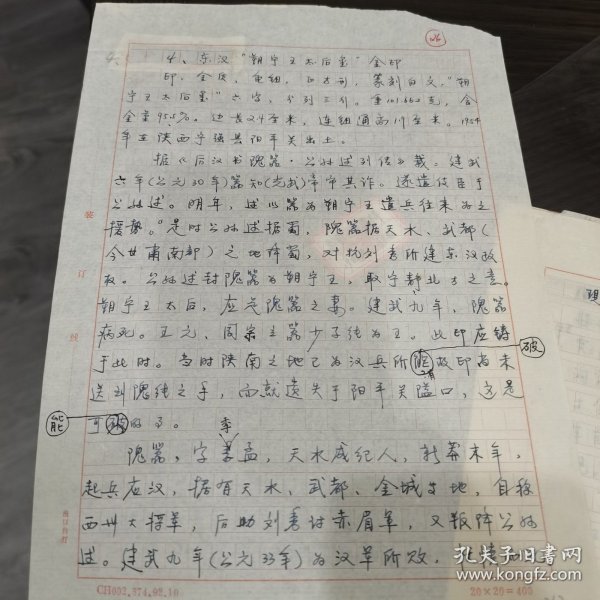 4、东汉"朔宁王太后玺"金印
印,金质,龟钮,白文,篆刻"朔
宁王太后玺"六字,分列三行。重
金量95.5%。边长2.4厘米,连钮通高 厘米。1954
年在陕西宁强县阳平关出土。
据《后汉书隗嚣·公孙述列传》载,建武
六年(公元30年)嚣知(光武)帝审其诈。遂遣使臣于
公孙述。明年,述以嚣为朔宁王遣兵往来为之
援势。"是时公孙述据蜀,隗嚣据天水、武都(
今甘肃南部)之地降蜀,对抗刘秀所建东汉政
权。公孙述封隗嚣为朔宁王,取宁静北方之意。
朔宁王太后,应是隗嚣之妻。建武九年,隗嚣
病死。王元、周宗立嚣少子纯为王。此印应铸
于此时。当时陕南之地已为汉兵所 有故印尚未
破
送到隗纯之手,而就遗失于阳平关隘口,这是
能
可 的了。
季
隗嚣,字 孟,天水成纪人,新莽末年,
起兵应汉,据有天水、武都、金城等地,自称
西州大将军,后助刘秀讨赤眉军,又叛降公孙
述。建武九年(公元33年)为汉军所败,
装
订
线
CH002.374.92.10
20×20=400
孔夫子旧书网
www.kongfz.com